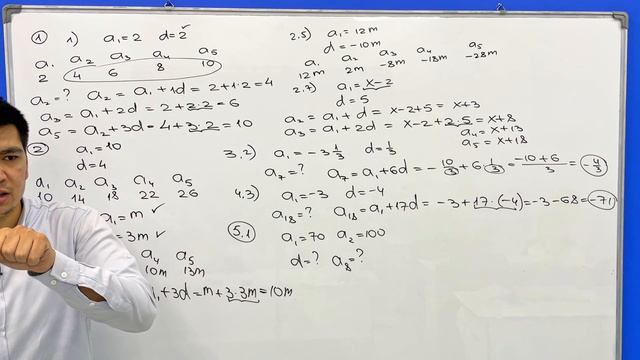 ① 1) a₁ = 2 d = 2 ✓
a₁ a₂ a₃ a₄ a₅
2 4 6 8 10
a₂ = ? a₂ = a₁ + 1d = 2 + 1·2 = 4
a₃ = a₁ + 2d = 2 + 2·2 = 6
a₅ = a₂ + 3d = 4 + 3·2 = 10
② a₁ = 10
d = 4
a₁ a₂ a₃ a₄ a₅
10 14 18 22 26
a₁ = m ✓
= 3m ✓
a₄ a₅
10m 13m
a₁ + 3d = m + 3·3m = 10m
2.5) a₁ = 12m
d = -10m
a₁ a₂ a₃ a₄ a₅
12m 2m -8m -18m -28m
2.7) a₁ = x-2
d = 5
a₂ = a₁ + d = x-2+5 = x+3
a₃ = a₁ + 2d = x-2+2·5 = x+8
a₄ = x+13
a₅ = x+18
3.2) a₁ = -3 1/3 d = 1/3
a₇ = ? a₇ = a₁ + 6d = -10/3 + 6·1/3 = (-10+6)/3 = -4/3
4.3) a₁ = -3 d = -4
a₁₈ = ? a₁₈ = a₁ + 17d = -3 + 17·(-4) = -3-68 = -71
5.1 a₁ = 70 a₂ = 100
d = ? a₈ = ?